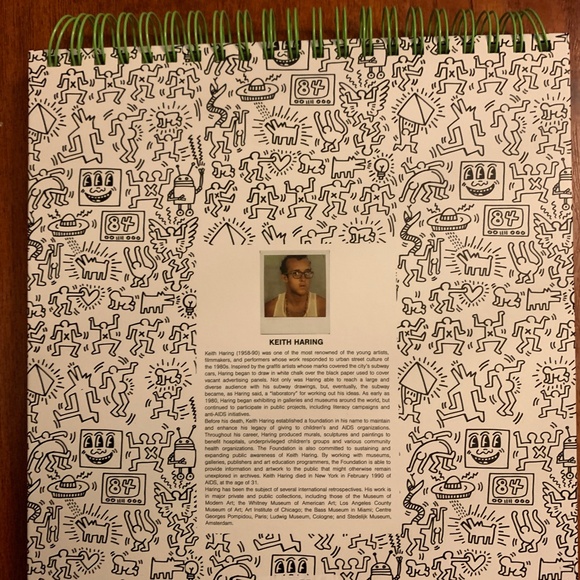 84
84
84
84
84
KEITH HARING
Keith Haring (1958-90) was one of the most renowned of the young artists,
filmmakers, and performers whose work responded to urban street culture of
the 1980s. Inspired by the graffiti artists whose marks covered the city's subway
cars, Haring began to draw in white chalk over the black paper used to cover
vacant advertising panels. Not only was Haring able to reach a large and
diverse audience with his subway drawings, but, eventually, the subway
became, as Haring said, a "laboratory" for working out his ideas. As early as
1980, Haring began exhibiting in galleries and museums around the world, but
continued to participate in public projects, including literacy campaigns and
anti-AIDS initiatives.
Before his death, Keith Haring established a foundation in his name to maintain
and enhance his legacy of giving to children's and AIDS organizations.
Throughout his career, Haring produced murals, sculptures and paintings to
benefit hospitals, underprivileged children's groups and various community
health organizations. The Foundation is also committed to sustaining and
expanding public awareness of Keith Haring. By working with museums,
galleries, publishers and art education programmes, the Foundation is able to
provide information and artwork to the public that might otherwise remain
unexplored in archives. Keith Haring died in New York in February 1990 of
AIDS, at the age of 31.
Haring has been the subject of several international retrospectives. His work is
in major private and public collections, including those of the Museum of
Modern Art; the Whitney Museum of American Art; Los Angeles County
Museum of Art; Art Institute of Chicago; the Bass Museum in Miami; Centre
Georges Pompidou, Paris; Ludwig Museum, Cologne; and Stedelijk Museum,
Amsterdam.
84
84